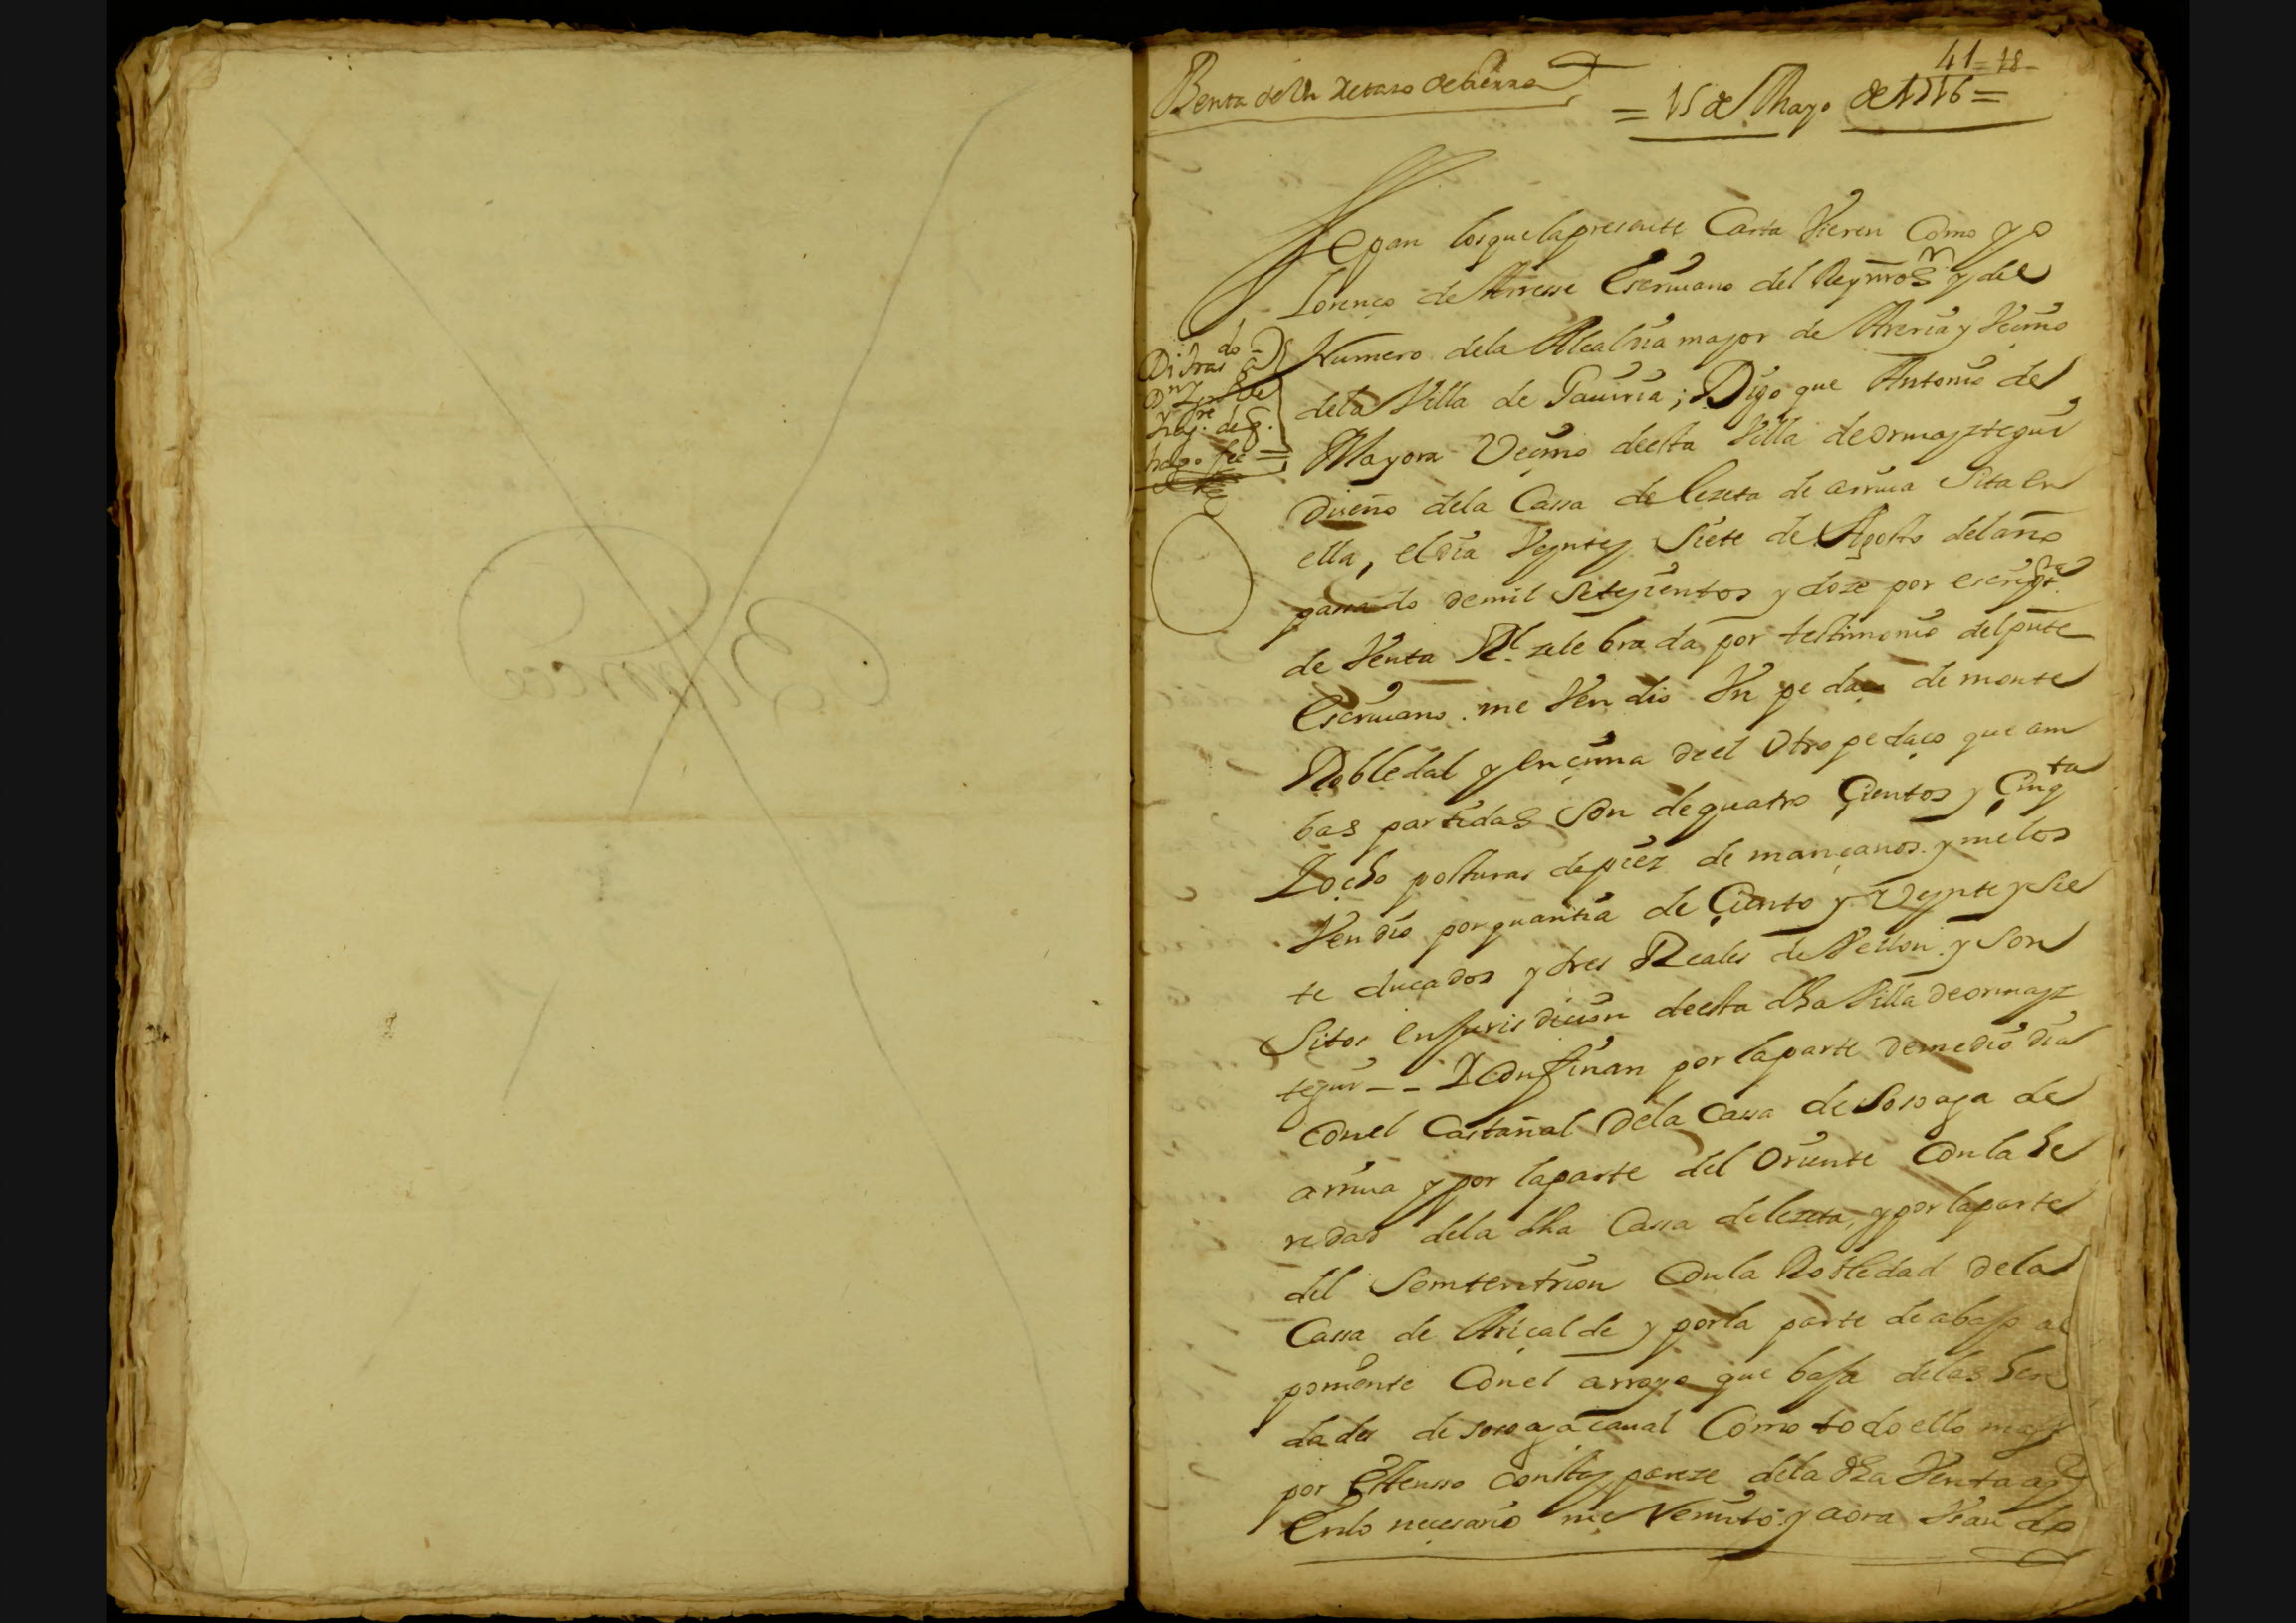 41=18-
Benta de Un Retaso de tierra
= 15 de Mayo de 1716 =
Sepan los que la presente Carta Vieren Como yo
Lorenço de Arresse Escriuano del Rey nro Sr y del
Numero de la Alcaldia mayor de Areria y Veçino
de la Villa de Gauiria; Digo que Antonio de
Mayora Veçino de esta Villa de ormayztegui
Dueño de la Cassa de lezeta de arriua Sita en
ella, el dia Veynte y Siete de Agosto del año
passado de mil Seteçientos y doze por escriptra
de Venta Rl. zelebrada por testimonio del pnte
Escriuano me Vendio Vn pedaço de monte
Robledal y ençima de el otro pedaço que am
bas partidas Son de quatro Çientos y Çinqta
Y ocho posturas de piez de mançanos y me los
Vendio por quantia de Çiento y Veynte y Sie
te ducados y tres Reales de Vellon y Son
Sitos en Jurisdiçion de esta dha Villa de ormayz
tegui -- Y Confinan por la parte de medio dia
Con el Castañal de la Cassa de Soroaga de
arriua y por la parte del oriente Con la he
redad de la dha Cassa de lezeta, y por la parte
del Semtentrion Con la Robledad de la
Cassa de Ariçalde y por la parte de abajo al
poniente Con el arroyo que baja de las here
dades de soroagaçaual Como todo ello mas
por Estensso consta y pareze de la dha Venta aq
En lo neçesario me Remito: y aora Juan de
Di tras do a
hago fee =